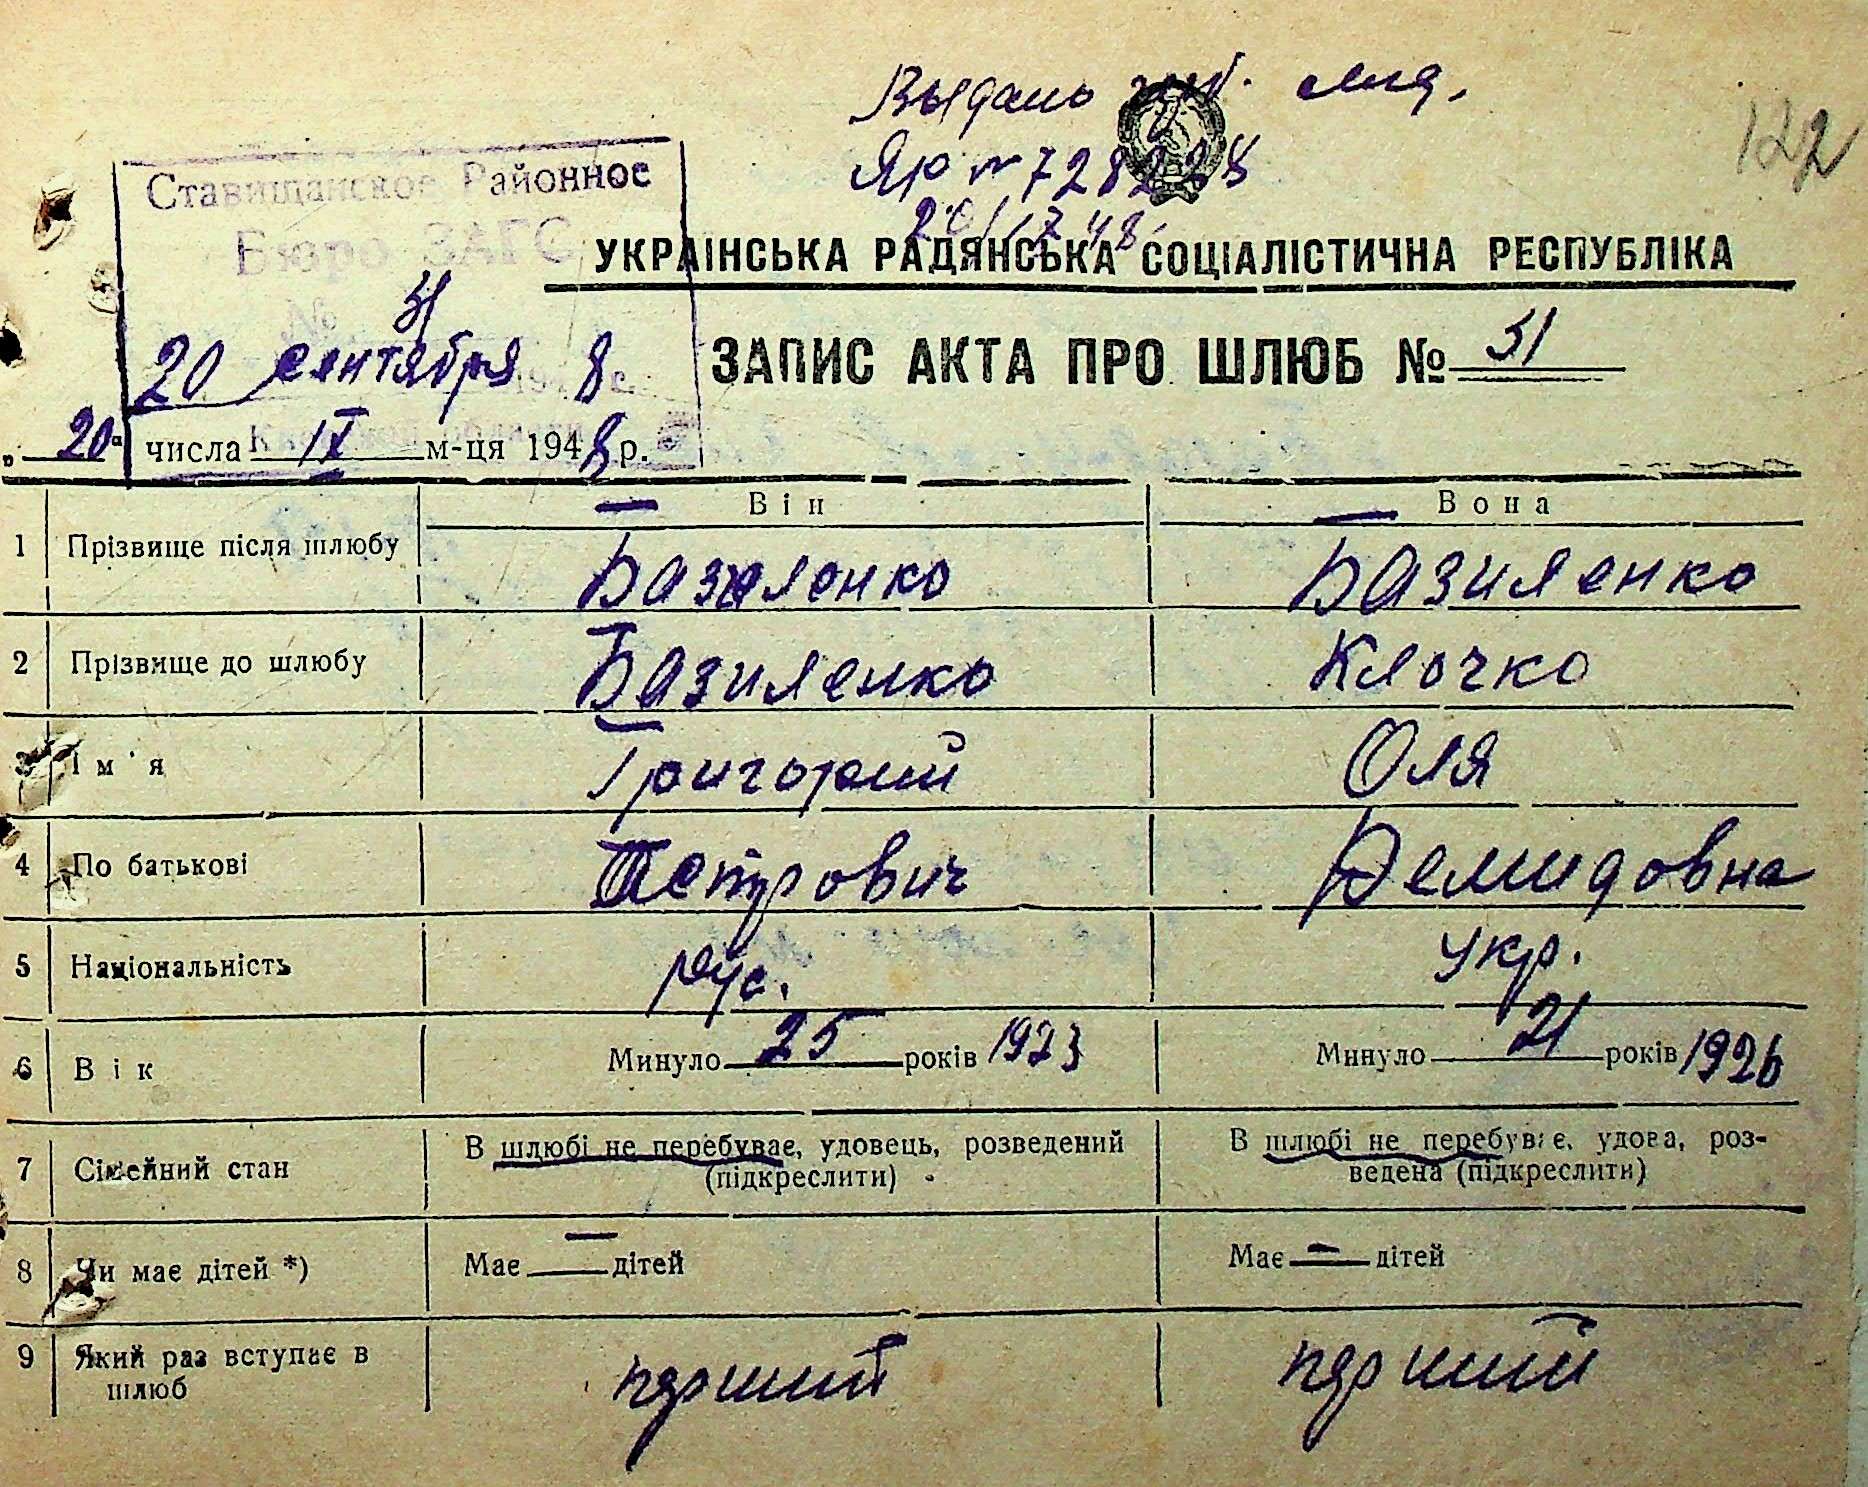 Выдано
ЯР № 728228
122
Ставищанское Районное
Бюро ЗАГС
№ 31
20 сентября 8
Киевской области
УКРАЇНСЬКА РАДЯНСЬКА СОЦІАЛІСТИЧНА РЕСПУБЛІКА
ЗАПИС АКТА ПРО ШЛЮБ № 31
„ 20 “ числа IX м-ця 1948 р.
Він Вона
1 Прізвище після шлюбу Базиленко Базиленко
2 Прізвище до шлюбу Базиленко Клочко
3 Ім'я Григорий Оля
4 По батькові Петрович Демидовна
5 Національність рус. укр.
6 Вік Минуло 25 років 1923 Минуло 21 років 1926
7 Сімейний стан В шлюбі не перебуває, удовець, розведений (підкреслити) В шлюбі не перебуває, удова, роз-
ведена (підкреслити)
8 Чи має дітей *) Має — дітей Має — дітей
9 Який раз вступає в
шлюб перший перший